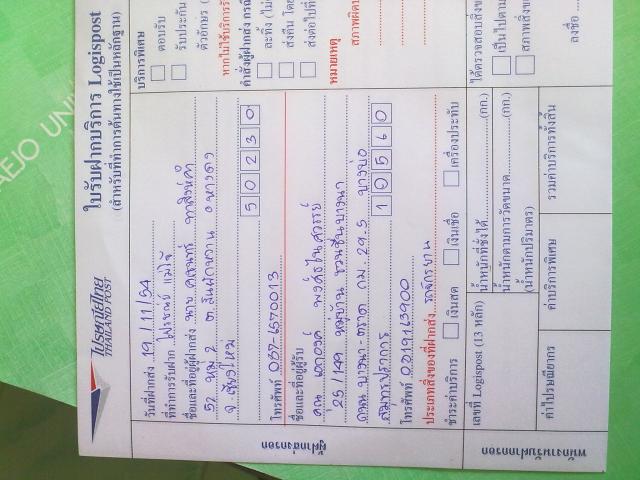 ไปรษณีย์ไทย
THAILAND POST
ใบรับฝากบริการ Logispost
(สำหรับที่ทำการต้นทางใช้เป็นหลักฐาน)
วันที่ฝากส่ง 19/11/54
ที่ทำการรับฝาก ไปรษณีย์ แม่โจ้
ชื่อและที่อยู่ผู้ฝากส่ง นาย
52 หมู่ 2 ต. สันผักหวาน อ หางดง
จ. เชียงใหม่ 50230
โทรศัพท์ 087-6570013
ชื่อและที่อยู่ผู้รับ
คุณ เอกองค์
25/149 หมู่บ้าน ชวนชื่นบางนา
ถนน บางนา-ตราด กม. 29.5 บางบ่อ
สมุทรปราการ 10560
โทรศัพท์ 0819163900
ประเภทสิ่งของที่ฝากส่ง รถจักรยาน
ชำระค่าบริการ เงินสด เงินเชื่อ เครื่องประทับ
ผู้ฝากส่งกรอก
บริการพิเศษ
ตอบรับ
รับประกัน
ตัวอักษร (
หากไม่ใช้บริการรั
คำสั่งผู้ฝากส่ง กรณี
ละทิ้ง (ไม่
ส่งคืน โดย
ส่งต่อไปที่
หมายเหตุ
สภาพผิดป
เลขที่ Logispost (13 หลัก)
น้ำหนักที่ชั่งได้ (กก.)
น้ำหนักตามการวัดขนาด (กก.)
(น้ำหนักปริมาตร)
ค่าไปรษณียากร ค่าบริการพิเศษ รวมค่าบริการทั้งสิ้น
พนักงานรับฝากกรอก
ได้ตรวจสอบสิ่งข
เป็นไปตาม
สภาพสิ่งขอ
ลงชื่อ
AEJO UNI